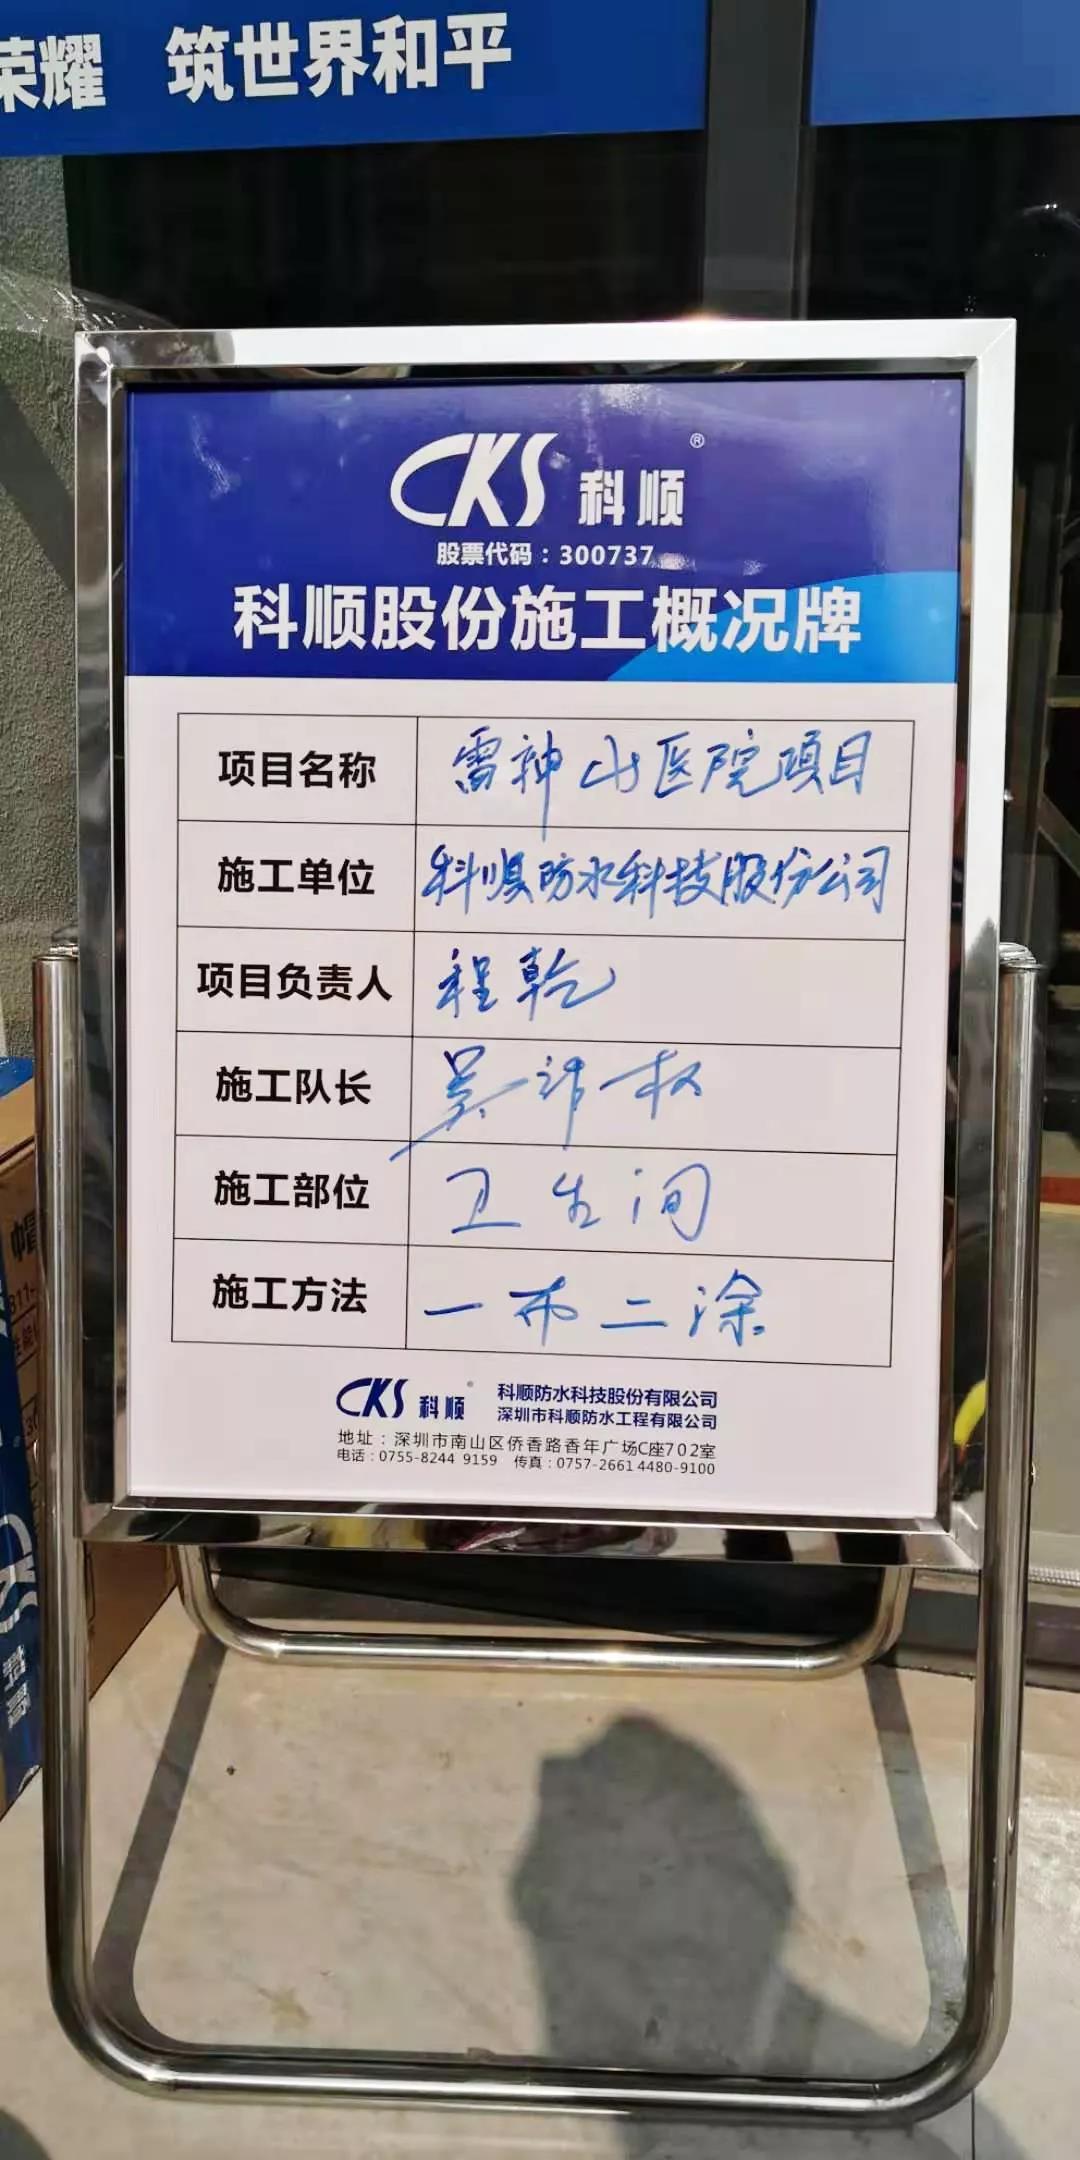 荣耀 筑世界和平
CKS 科顺 ®
股票代码：300737
科顺股份施工概况牌
项目名称 雷神山医院项目
施工单位 科顺防水科技股份公司
项目负责人 程乾
施工队长 吴祚权
施工部位 卫生间
施工方法 一布二涂
CKS 科顺 ®
科顺防水科技股份有限公司
深圳市科顺防水工程有限公司
地址：深圳市南山区侨香路香年广场C座702室
电话：0755-8244 9159 传真：0757-2661 4480-9100
CKS